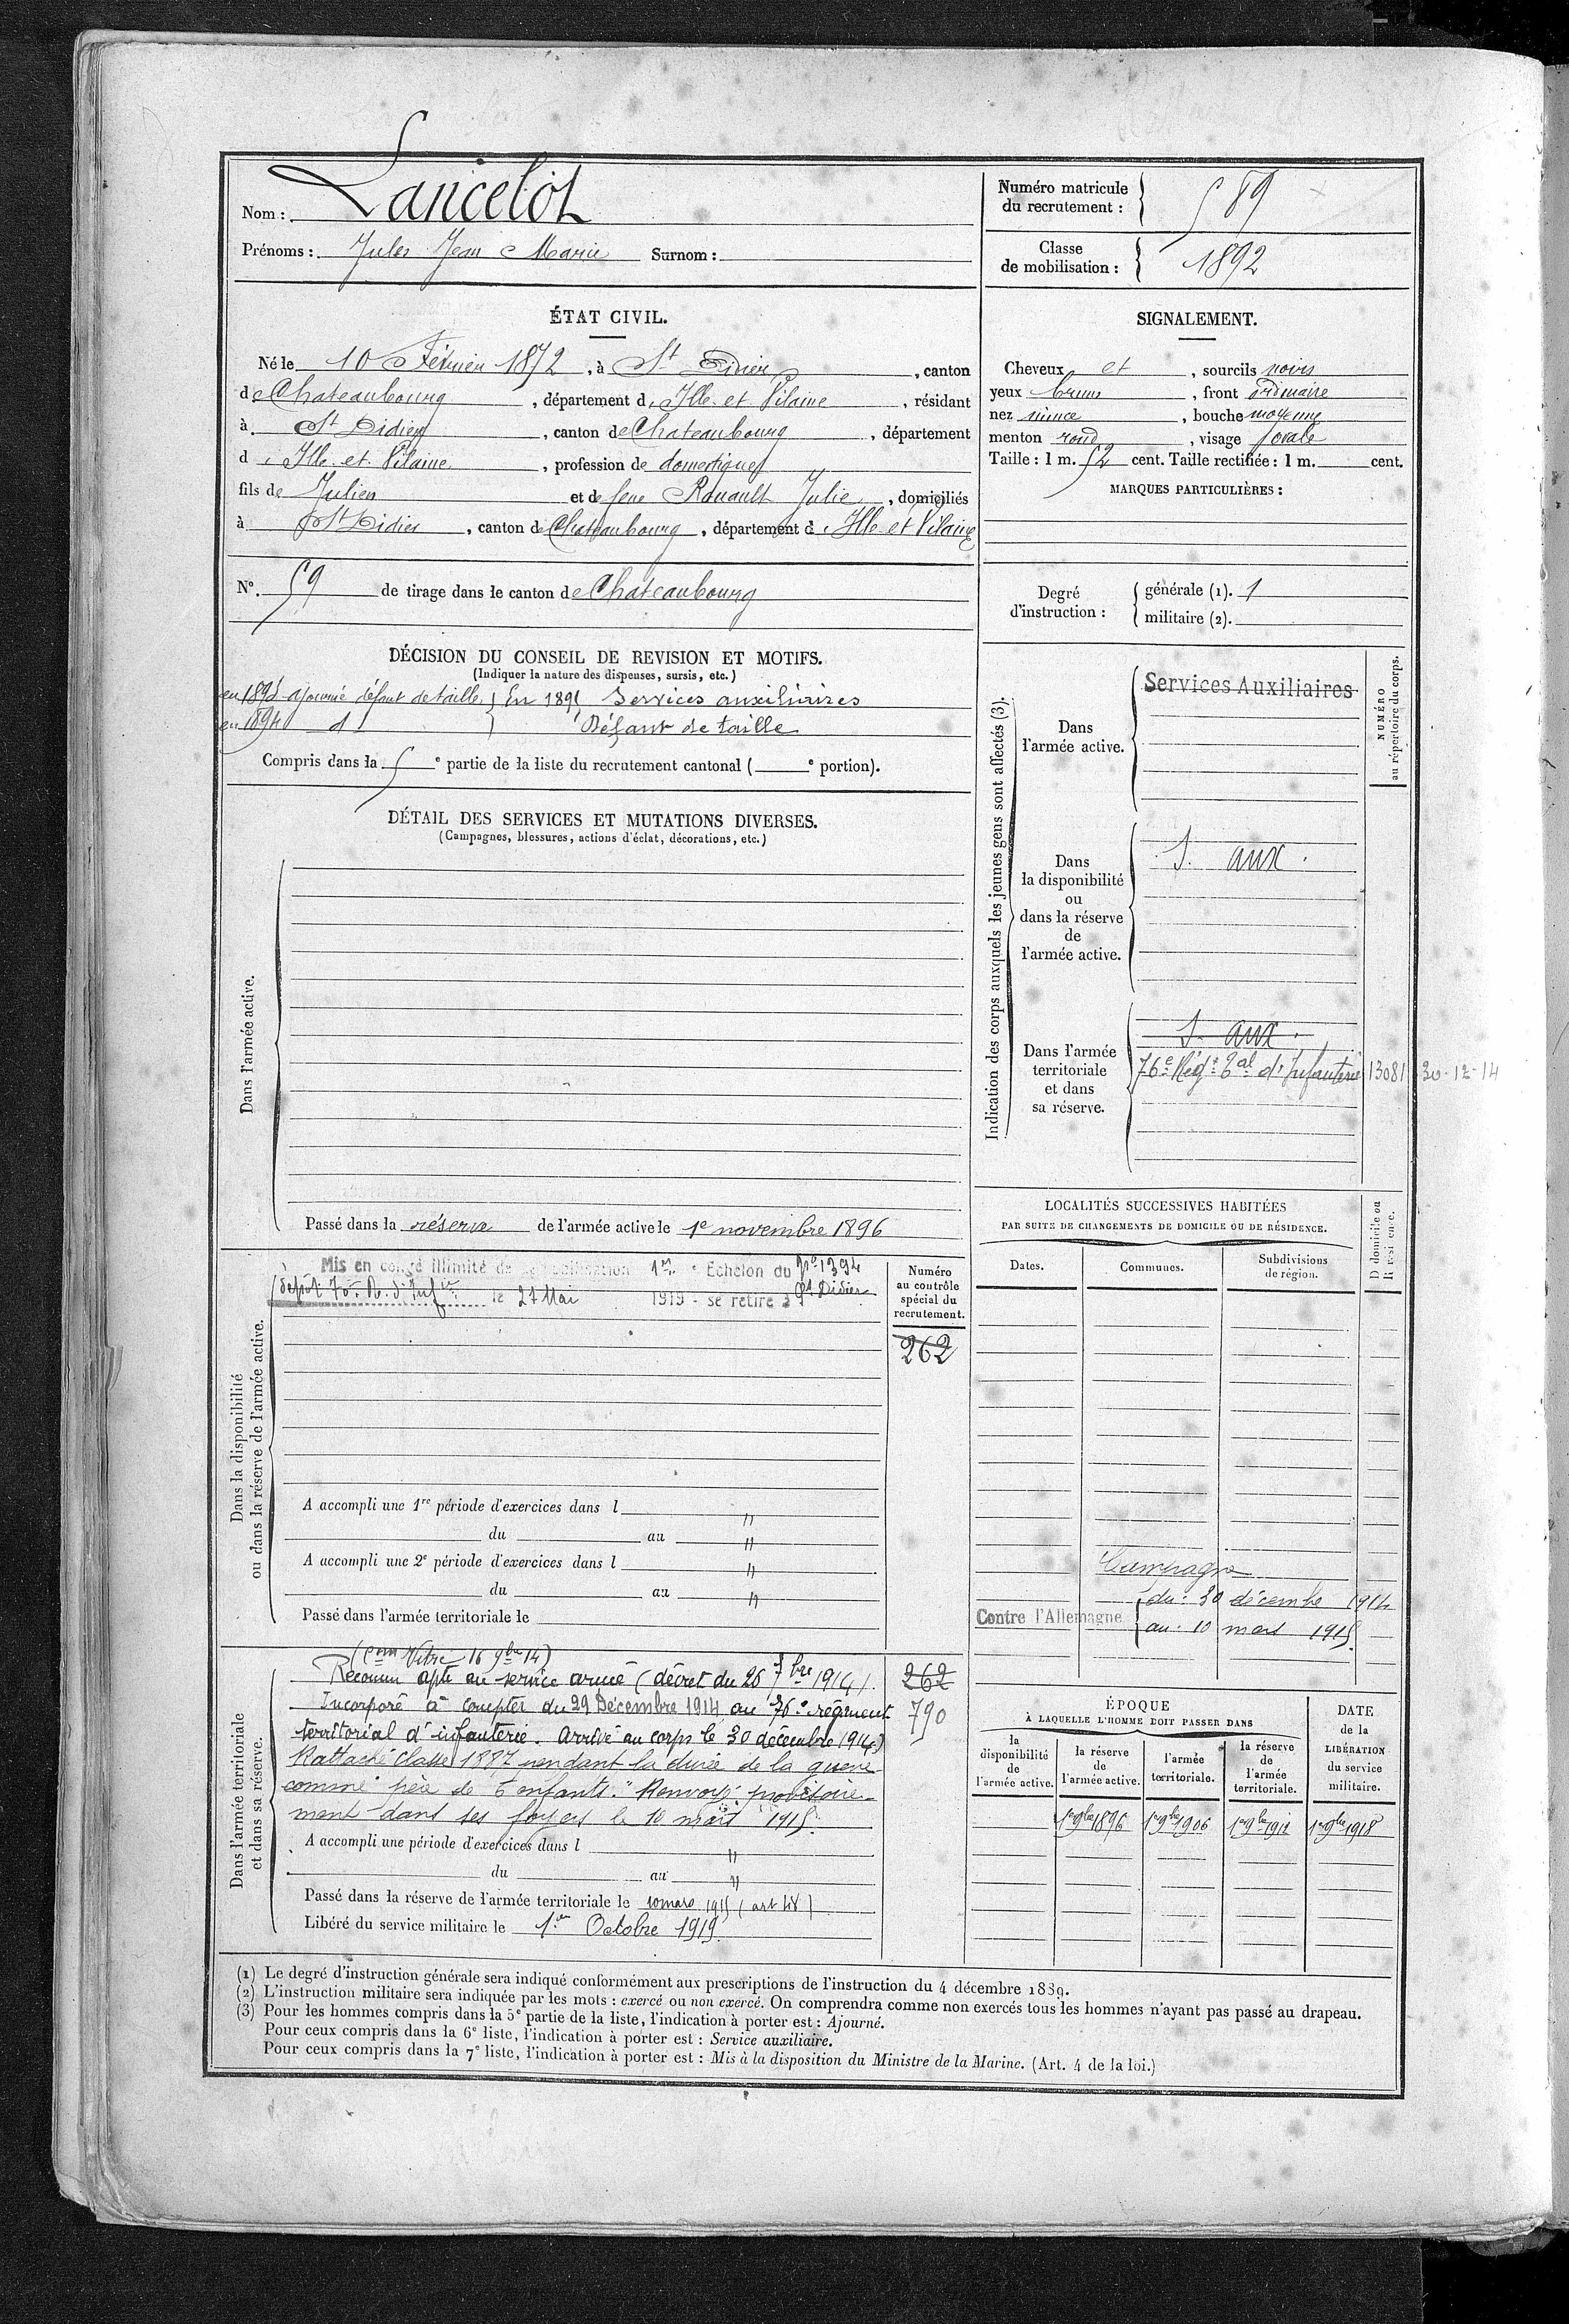 Nom : Lancelot
Prénoms : Jules Jean Marie Surnom :
Numéro matricule du recrutement : 589
Classe de mobilisation : 1892
ÉTAT CIVIL.
Né le 10 Février 1872, à St Didier, canton
de Chateaubourg, département d'Ille et Vilaine, résidant
à St Didier, canton de Chateaubourg, département
d'Ille et Vilaine, profession de domestique
fils de Julien et de feue Rouault Julie, domiciliés
à St Didier, canton de Chateaubourg, département d'Ille et Vilaine
N°. 59 de tirage dans le canton de Chateaubourg
SIGNALEMENT.
Cheveux et, sourcils noirs
yeux bruns, front ordinaire
nez mince, bouche moyenne
menton rond, visage ovale
Taille : 1 m. 52 cent. Taille rectifiée : 1 m. cent.
MARQUES PARTICULIÈRES :
Degré d'instruction :
générale (1). 1
militaire (2).
DÉCISION DU CONSEIL DE REVISION ET MOTIFS.
(Indiquer la nature des dispenses, sursis, etc.)
en 1893 ajourné défaut de taille } En 1895 Services auxiliaires
en 1894 d } Défaut de taille
Compris dans la 5e partie de la liste du recrutement cantonal ( e portion).
DÉTAIL DES SERVICES ET MUTATIONS DIVERSES.
(Campagnes, blessures, actions d'éclat, décorations, etc.)
Dans l'armée active.
Passé dans la réserve de l'armée active le 1e novembre 1896
Indication des corps auxquels les jeunes gens sont affectés (3).
NUMÉRO au répertoire du corps.
Dans l'armée active.
Services Auxiliaires
Dans la disponibilité ou dans la réserve de l'armée active.
S. aux.
Dans l'armée territoriale et dans sa réserve.
S. aux.
76e Régt Tal d'Infanterie 13081 30-12-14
Dans la disponibilité ou dans la réserve de l'armée active.
Mis en congé illimité de démobilisation 1er Echelon du No 1394
(dépôt 70e R. d'Infie le 27 Mai 1919 - se retire à St Didier
Numéro au contrôle spécial du recrutement.
262
A accompli une 1re période d'exercices dans l "
du au "
A accompli une 2e période d'exercices dans l "
du au "
Passé dans l'armée territoriale le
LOCALITÉS SUCCESSIVES HABITÉES
PAR SUITE DE CHANGEMENTS DE DOMICILE OU DE RÉSIDENCE.
Dates. Communes. Subdivisions de région. D domicile ou R résidence.
Campagne
Contre l'Allemagne
du : 30 décembre 1914
au : 10 mars 1915
Dans l'armée territoriale et dans sa réserve.
(Con Vitré 16 9bre 14)
Reconnu apte au service armé (décret du 26 7bre 1914). 262
Incorporé à compter du 29 Décembre 1914 au 76e régiment 790
territorial d'infanterie. Arrivé au corps le 30 décembre 1914)
Rattaché classe 1887 pendant la durée de la guerre
comme père de 5 enfants. "Renvoyé provisoire-
ment dans ses foyers le 10 mars 1915.
A accompli une période d'exercices dans l "
du au "
Passé dans la réserve de l'armée territoriale le 10 mars 1915 (art 48)
Libéré du service militaire le 1er Octobre 1919.
ÉPOQUE
À LAQUELLE L'HOMME DOIT PASSER DANS
la disponibilité de l'armée active. la réserve de l'armée active. l'armée territoriale. la réserve de l'armée territoriale.
DATE de la LIBÉRATION du service militaire.
1er 9bre 1896 1er 9bre 1906 1er 9bre 1912 1er 9bre 1918
(1) Le degré d'instruction générale sera indiqué conformément aux prescriptions de l'instruction du 4 décembre 1889.
(2) L'instruction militaire sera indiquée par les mots : exercé ou non exercé. On comprendra comme non exercés tous les hommes n'ayant pas passé au drapeau.
(3) Pour les hommes compris dans la 5e partie de la liste, l'indication à porter est : Ajourné.
Pour ceux compris dans la 6e liste, l'indication à porter est : Service auxiliaire.
Pour ceux compris dans la 7e liste, l'indication à porter est : Mis à la disposition du Ministre de la Marine. (Art. 4 de la loi.)